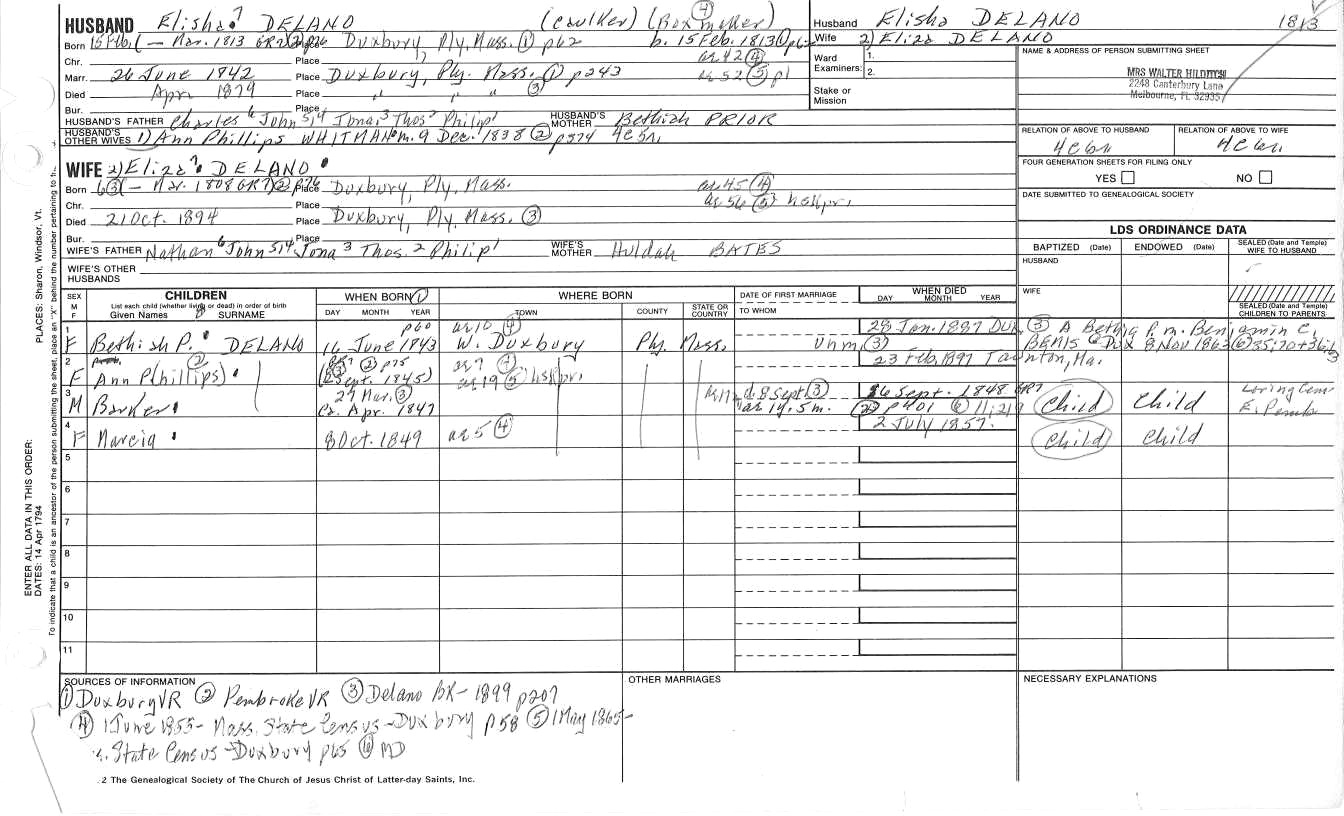 HUSBAND Elisha 7 DELANO (Caulker) (Box maker) ④
Born 15 Feb. ( – Mar. 1813 GR2) ② p26 Place Duxbury, Ply. Mass. ① p62 b. 15 Feb. 1813 ① p62
Chr. Place ae 42 ④
Marr. 26 June 1842 Place Duxbury, Ply. Mass. ① p243 ae 52 ⑤ p1
Died Apr 1879 Place " " " ③
Bur. Place
HUSBAND'S FATHER Charles 6 John 5,4 Jona 3 Thos 2 Philip 1 HUSBAND'S MOTHER Bethiah PRIOR
HUSBAND'S OTHER WIVES 1) Ann Phillips WHITMAN m. 9 Dec. 1838 ② p374
Husband Elisha DELANO 1813
Wife 2) Eliza DELANO
Ward Examiners: 1.
2.
Stake or Mission
NAME & ADDRESS OF PERSON SUBMITTING SHEET
MRS WALTER HILDITCH
2248 Canterbury Lane
Melbourne, FL 32935
RELATION OF ABOVE TO HUSBAND RELATION OF ABOVE TO WIFE
FOUR GENERATION SHEETS FOR FILING ONLY
YES NO
DATE SUBMITTED TO GENEALOGICAL SOCIETY
WIFE 2) Eliza 7 DELANO
Born 6 ③ ( – Mar. 1808 GR7) ② p26 Place Duxbury, Ply. Mass. ae 45 ④
Chr. Place ae 56 ⑤ hskpr.
Died 21 Oct. 1894 Place Duxbury, Ply Mass. ③
Bur. Place
WIFE'S FATHER Nathan 6 John 5,4 Jona 3 Thos. 2 Philip 1 WIFE'S MOTHER Huldah BATES
WIFE'S OTHER HUSBANDS
LDS ORDINANCE DATA
BAPTIZED (Date) ENDOWED (Date) SEALED (Date and Temple) WIFE TO HUSBAND
HUSBAND
WIFE
SEALED (Date and Temple) CHILDREN TO PARENTS
SEX M F
CHILDREN
List each child (whether living or dead) in order of birth
Given Names 8 SURNAME
WHEN BORN ①
DAY MONTH YEAR
WHERE BORN
TOWN COUNTY STATE OR COUNTRY
DATE OF FIRST MARRIAGE
TO WHOM
WHEN DIED
DAY MONTH YEAR
1 F Bethiah P. DELANO 16 June 1843 p60 ae 10 ④ W. Duxbury Ply. Mass. 28 Jan. 1887 Dux. ③ A Bethia P. m. Benjamin C. BEMIS Dux 8 Nov 1863 ⑥ 35:20+36:
2 F Ann P(hillips) ② ② p75 (Sept. 1845) ae 9 ④ ae 19 ⑤ hskpr. Unm. ③ 23 Feb. 1897 Taunton, Ma.
3 M Barker 27 Mar. ③ Ca. Apr. 1847 d. 8 Sept ③ 16 Sept. 1848 GR7 ae 1y. 5m. ② p401 ⑥ 11:219 Child Child Loring Cem E. Pemb
4 F Marcia 8 Oct. 1849 ae 5 ④ 2 July 1857. Child Child
5
6
7
8
9
10
11
SOURCES OF INFORMATION
① Duxbury VR ② Pembroke VR ③ Delano BK – 1899 p207
④ 1 June 1855 – Mass. State Census – Duxbury p58 ⑤ 1 May 1865 –
s. State Census – Duxbury p65 ⑥ MD
OTHER MARRIAGES
NECESSARY EXPLANATIONS
2 The Genealogical Society of The Church of Jesus Christ of Latter-day Saints, Inc.
ENTER ALL DATA IN THIS ORDER:
DATES: 14 Apr 1794 PLACES: Sharon, Windsor, Vt.
To indicate that a child is an ancestor of the person submitting the sheet, place an "X" behind the number pertaining to